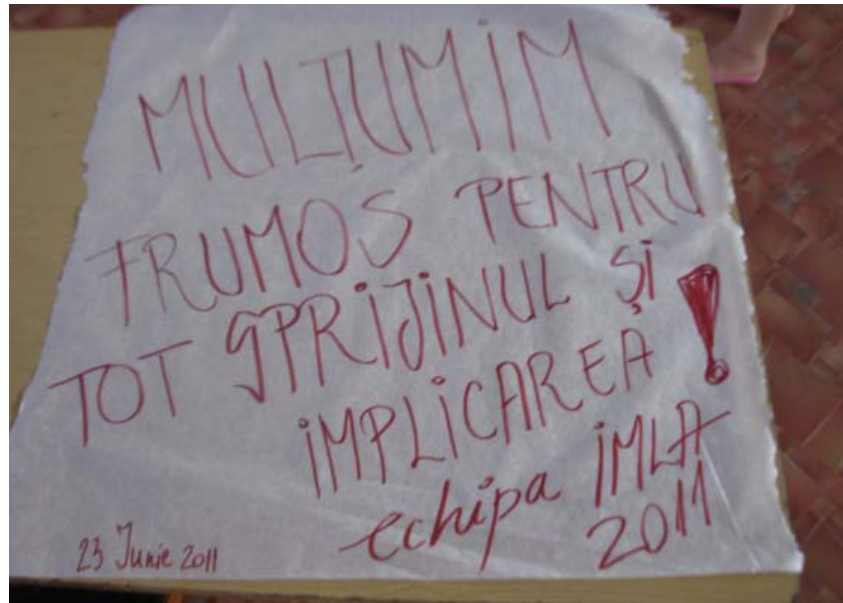 MULȚUMIM
FRUMOS PENTRU
TOT SPRIJINUL ȘI
IMPLICAREA!
echipa IMLA
2011
23 Iunie 2011